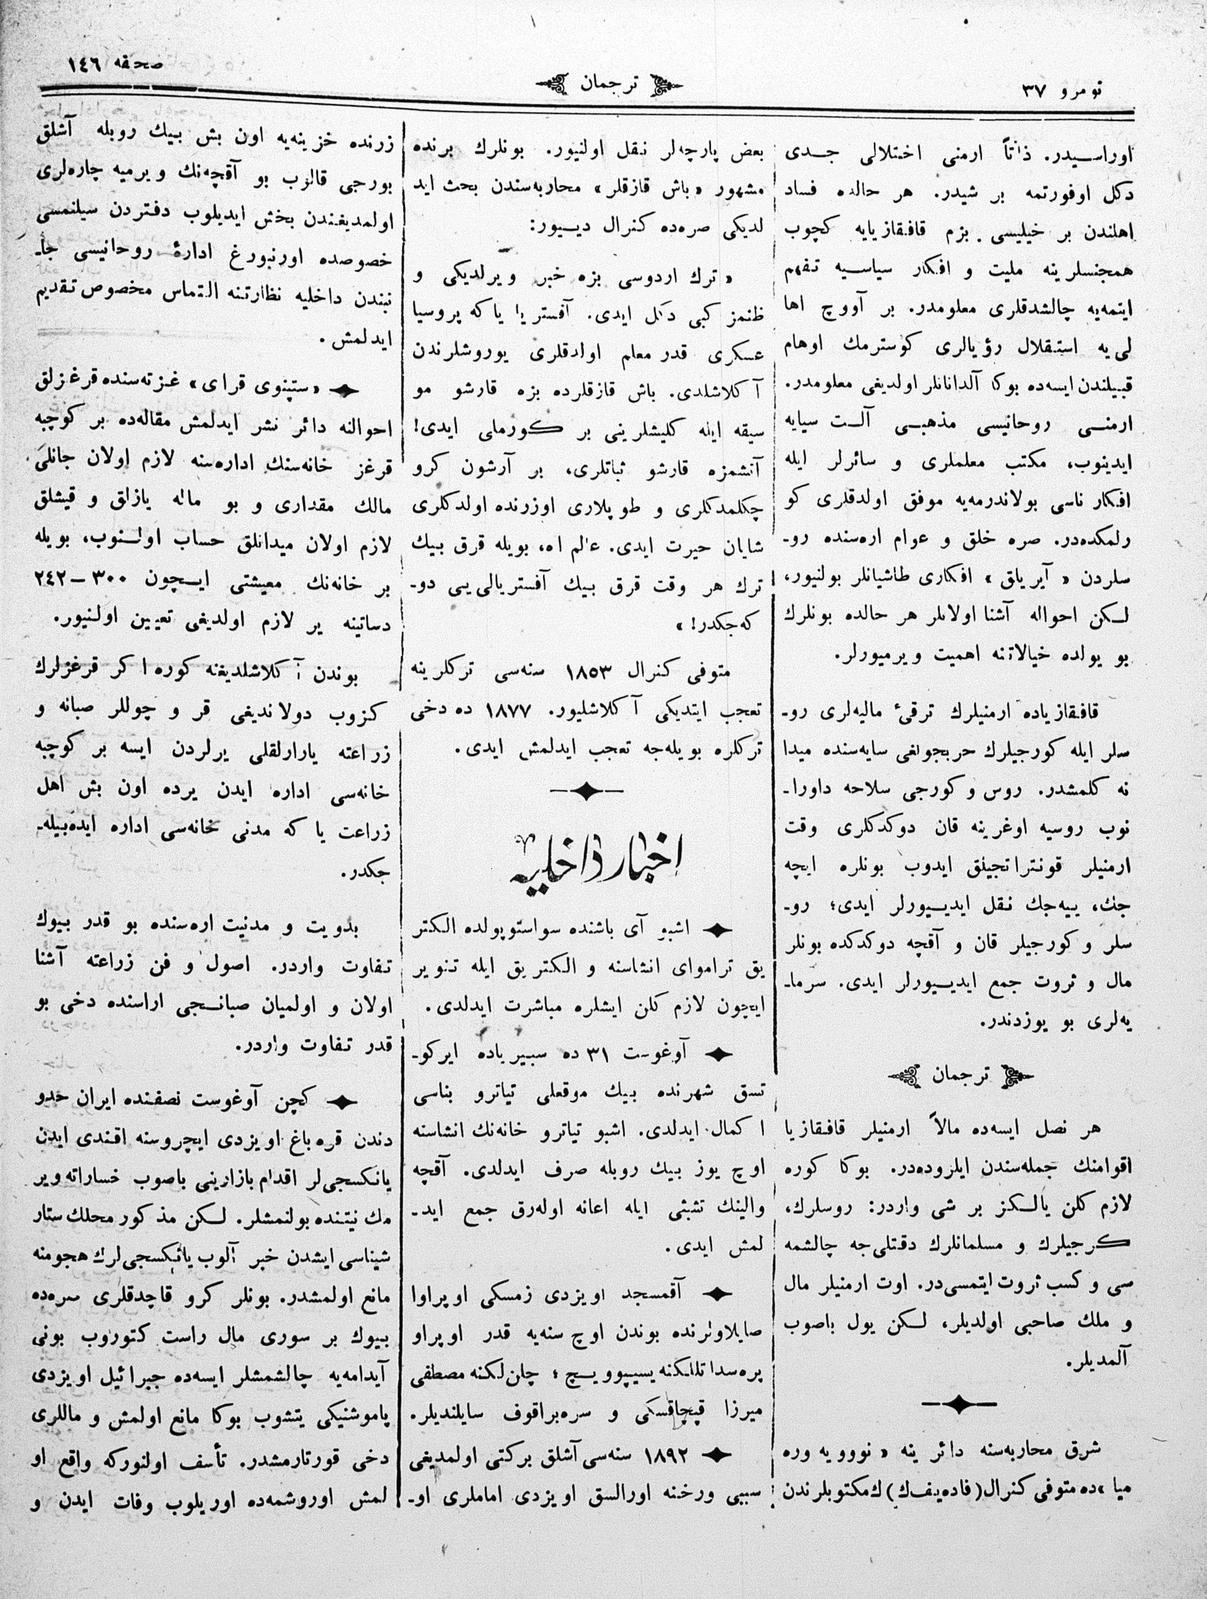 نومرو ٣٧
ترجمان
صحفه ١٤٦
اوراسیدر. ذاتاً ارمنی اختلالی جدی
دكل اوفورتمه بر شیدر. هر حالده فساد
اهلندن بر خیلیسی بزم قافقازیایه كچوب
همجنسلرینه ملیت و افكار سیاسیه تفهم
ایتمه‌یه چالشدقلری معلومدر. بر آووچ اها
لی‌یه استقلال رؤیالری كوسترمك اوهام
قبیلندن ایسه‌ده بوكا آلدانانلر اولدیغی معلومدر.
ارمنی روحانیسی مذهبی آلت سیایه
ایدینوب، مكتب معلملری و سائرلر ایله
افكار ناسی بولاندرمه‌یه موفق اولدقلری كو
رلمكده‌در. صره خلق و عوام اره‌سنده رو-
سلردن « آیریلق » افكاری طاشیانلر بولنیور،
لكن احواله آشنا اولانلر هر حالده بونلرك
بو یولده خیالاتنه اهمیت ویرمیورلر.
قافقازیاده ارمنیلرك ترقیٔ مالیه‌لری رو-
سلر ایله كورجیلرك حربجولغی سایه‌سنده میدا
نه كلمشدر. روس و كورجی سلاحه داورا-
نوب روسیه اوغرینه قان دوكدكلری وقت
ارمنیلر قونتراتجیلق ایدوب بونلره ایچه
جك، ییه‌جك نقل ایدییورلر ایدی؛ رو-
سلر و كورجیلر قان و آقچه دوكدكده بونلر
مال و ثروت جمع ایدییورلر ایدی. سرما-
یه‌لری بو یوزدندر.
ترجمان
هر نصل ایسه‌ده مالاً ارمنیلر قافقازیا
اقوامنك جمله‌سندن ایلروده‌در. بوكا كوره
لازم كلن یالكز بر شی واردر: روسلرك،
كرجیلرك و مسلمانلرك دقتلی‌جه چالشمه
سی و كسب ثروت ایتمسی‌در. اوت ارمنیلر مال
و ملك صاحبی اولدیلر، لكن یول باصوب
آلمدیلر.
شرق محاربه‌سنه دائر ینه « نووویه وره
میا »ده متوفی كنرال (فاده‌یف‌ك) ك مكتوبلرندن
بعض پارچه‌لر نقل اولنیور. بونلرك برنده
مشهور «باش قازقلر» محاربه‌سندن بحث اید
لدیكی صره‌ده كنرال دییور:
« ترك اردوسی بزه خبر ویرلدیكی و
ظنمز كبی دكل ایدی. آفستریا یاكه پروسیا
عسكری قدر معلم اولدقلری یوروشلرندن
آكلاشلدی. باش قازقلرده بزه قارشو مو
سیقه ایله كلیشلرینی بر كورملی ایدی!
آتشمزه قارشو ثباتلری، بر آرشون كرو
چكلمدكلری و طوپلاری اوزرنده اولدكلری
شایان حیرت ایدی. عالم اه، بویله قرق بیك
ترك هر وقت قرق بیك آفستریالی‌یی دو-
كه‌جكدر! »
متوفی كنرال ١٨٥٣ سنه‌سی تركلرینه
تعجب ایتدیكی آكلاشلیور. ١٨٧٧ ده دخی
تركلره بویله‌جه تعجب ایدلمش ایدی.
اخبار داخلیه
اشبو آی باشنده سواستوپولده الكتر
یق تراموای انشاسنه و الكتریق ایله تنویر
ایچون لازم كلن ایشلره مباشرت ایدلدی.
آوغوست ٣١ ده سبیریاده ایركو-
تسق شهرنده بیك موقعلی تیاترو بناسی
اكمال ایدلدی. اشبو تیاترو خانه‌نك انشاسنه
اوچ یوز بیك روبله صرف ایدلدی. آقچه
والینك تشبثی ایله اعانه اوله‌رق جمع اید-
لمش ایدی.
آقمسجد اویزدی زمسكی اوپراوا
صایلاولرنده بوندن اوچ سنه‌یه قدر اوپراو
پره‌سداتللكنه پسیپوویچ؛ چان‌لكنه مصطفی
میرزا قپچاقسكی و سره‌براقوف سایلندیلر.
١٨٩٢ سنه‌سی آشلق بركتی اولمدیغی
سببی ورخنه اورالسق اویزدی اماملری او-
زرنده خزینه‌یه اون بش بیك روبله آشلق
بورجی قالزب بو آقچه‌نك ویرمیه چاره‌لری
اولمدیغندن بخش ایدیلوب دفتردن سیلنمسی
خصوصده اورنبورغ ادارهٔ روحانیسی جا-
نبندن داخلیه نظارتنه التماس مخصوص تقدیم
ایدلمش.
«ستپنوی قرای» غزته‌سنده قرغزلق
احوالنه دائر نشر ایدلمش مقاله‌ده بر كوچبه
قرغز خانه‌سنك اداره‌سنه لازم اولان جانلی
مالك مقداری و بو ماله یازلق و قیشلق
لازم اولان میدانلق حساب اولنوب، بویله
بر خانه‌نك معیشتی ایچون ٣٠٠—٢٤٢
دساتینه یر لازم اولدیغی تعیین اولنیور.
بوندن آكلاشلدیغنه كوره اكر قرغزلرك
كزوب دولاندیغی قر و چوللر صبانه و
زراعته یارارلقلی یرلردن ایسه بر كوچبه
خانه‌سی اداره ایدن یرده اون بش اهل
زراعت یاكه مدنی خانه‌سی اداره ایده‌بیله-
جكدر.
بدویت و مدنیت اره‌سنده بو قدر بیوك
تفاوت واردر. اصول و فن زراعته آشنا
اولان و اولمیان صبانجی اراسنده دخی بو
قدر تفاوت واردر.
كچن آوغوست نصفنده ایران حدو
دندن قره‌باغ اویزدی ایچروسنه اقندی ایدن
یانكسجی‌لر اقدام بازارینی باصوب خساراته ویر
مك نیتنده بولنمشلر. لكن مذكور محلك ستار
شیناسی ایشدن خبر آلوب یانكسجی‌لرك هجومنه
مانع اولمشدر. بونلر كرو قاچدقلری سره‌ده
بیوك بر سوری مال راست كتوروب بونی
آیدامه‌یه چالشمشلر ایسه‌ده جبرائیل اویزدی
پاموشنیكی یتشوب بوكا مانع اولمش و ماللری
دخی قورتارمشدر. تأسف اولنوركه واقع او
لمش اوروشمه‌ده اوریلوب وفات ایدن و